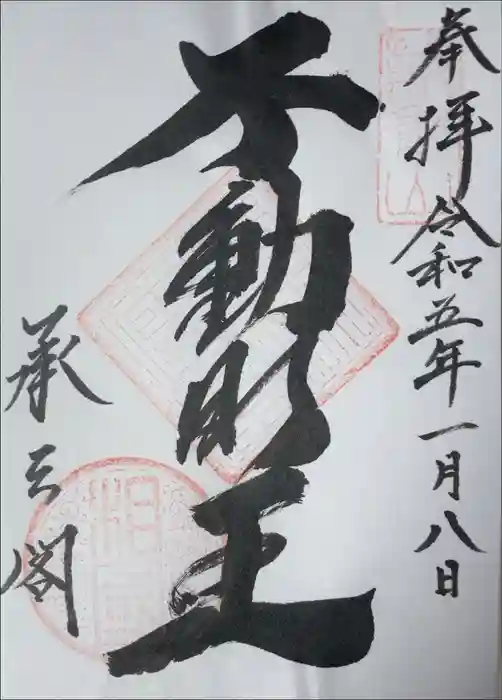 奉拝
令和五年一月八日
不動明王
承云閣